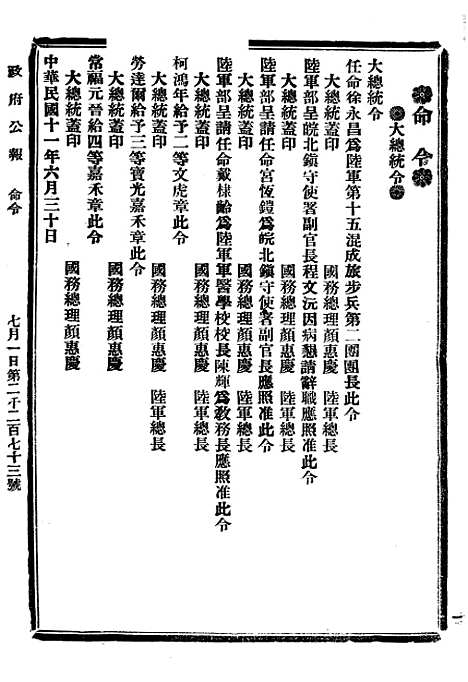 命令
大總統令
大總統令
任命徐永昌爲陸軍第十五混成旅步兵第二團團長此令
大總統蓋印　國務總理顏惠慶　陸軍總長
陸軍部呈皖北鎮守使署副官長程文沅因病懇請辭職應照准此令
大總統蓋印　國務總理顏惠慶　陸軍總長
陸軍部呈請任命宮恆鎧爲皖北鎮守使署副官長應照准此令
大總統蓋印　國務總理顏惠慶　陸軍總長
陸軍部呈請任命戴棣齡爲陸軍軍醫學校校長陳輝爲敎務長應照准此令
大總統蓋印　國務總理顏惠慶　陸軍總長
柯鴻年給予二等文虎章此令
大總統蓋印　國務總理顏惠慶　陸軍總長
勞達爾給予三等寶光嘉禾章此令
大總統蓋印　國務總理顏惠慶
常福元晉給四等嘉禾章此令
大總統蓋印　國務總理顏惠慶
中華民國十一年六月三十日
政府公報　命令　七月一日第二千二百七十三號
一